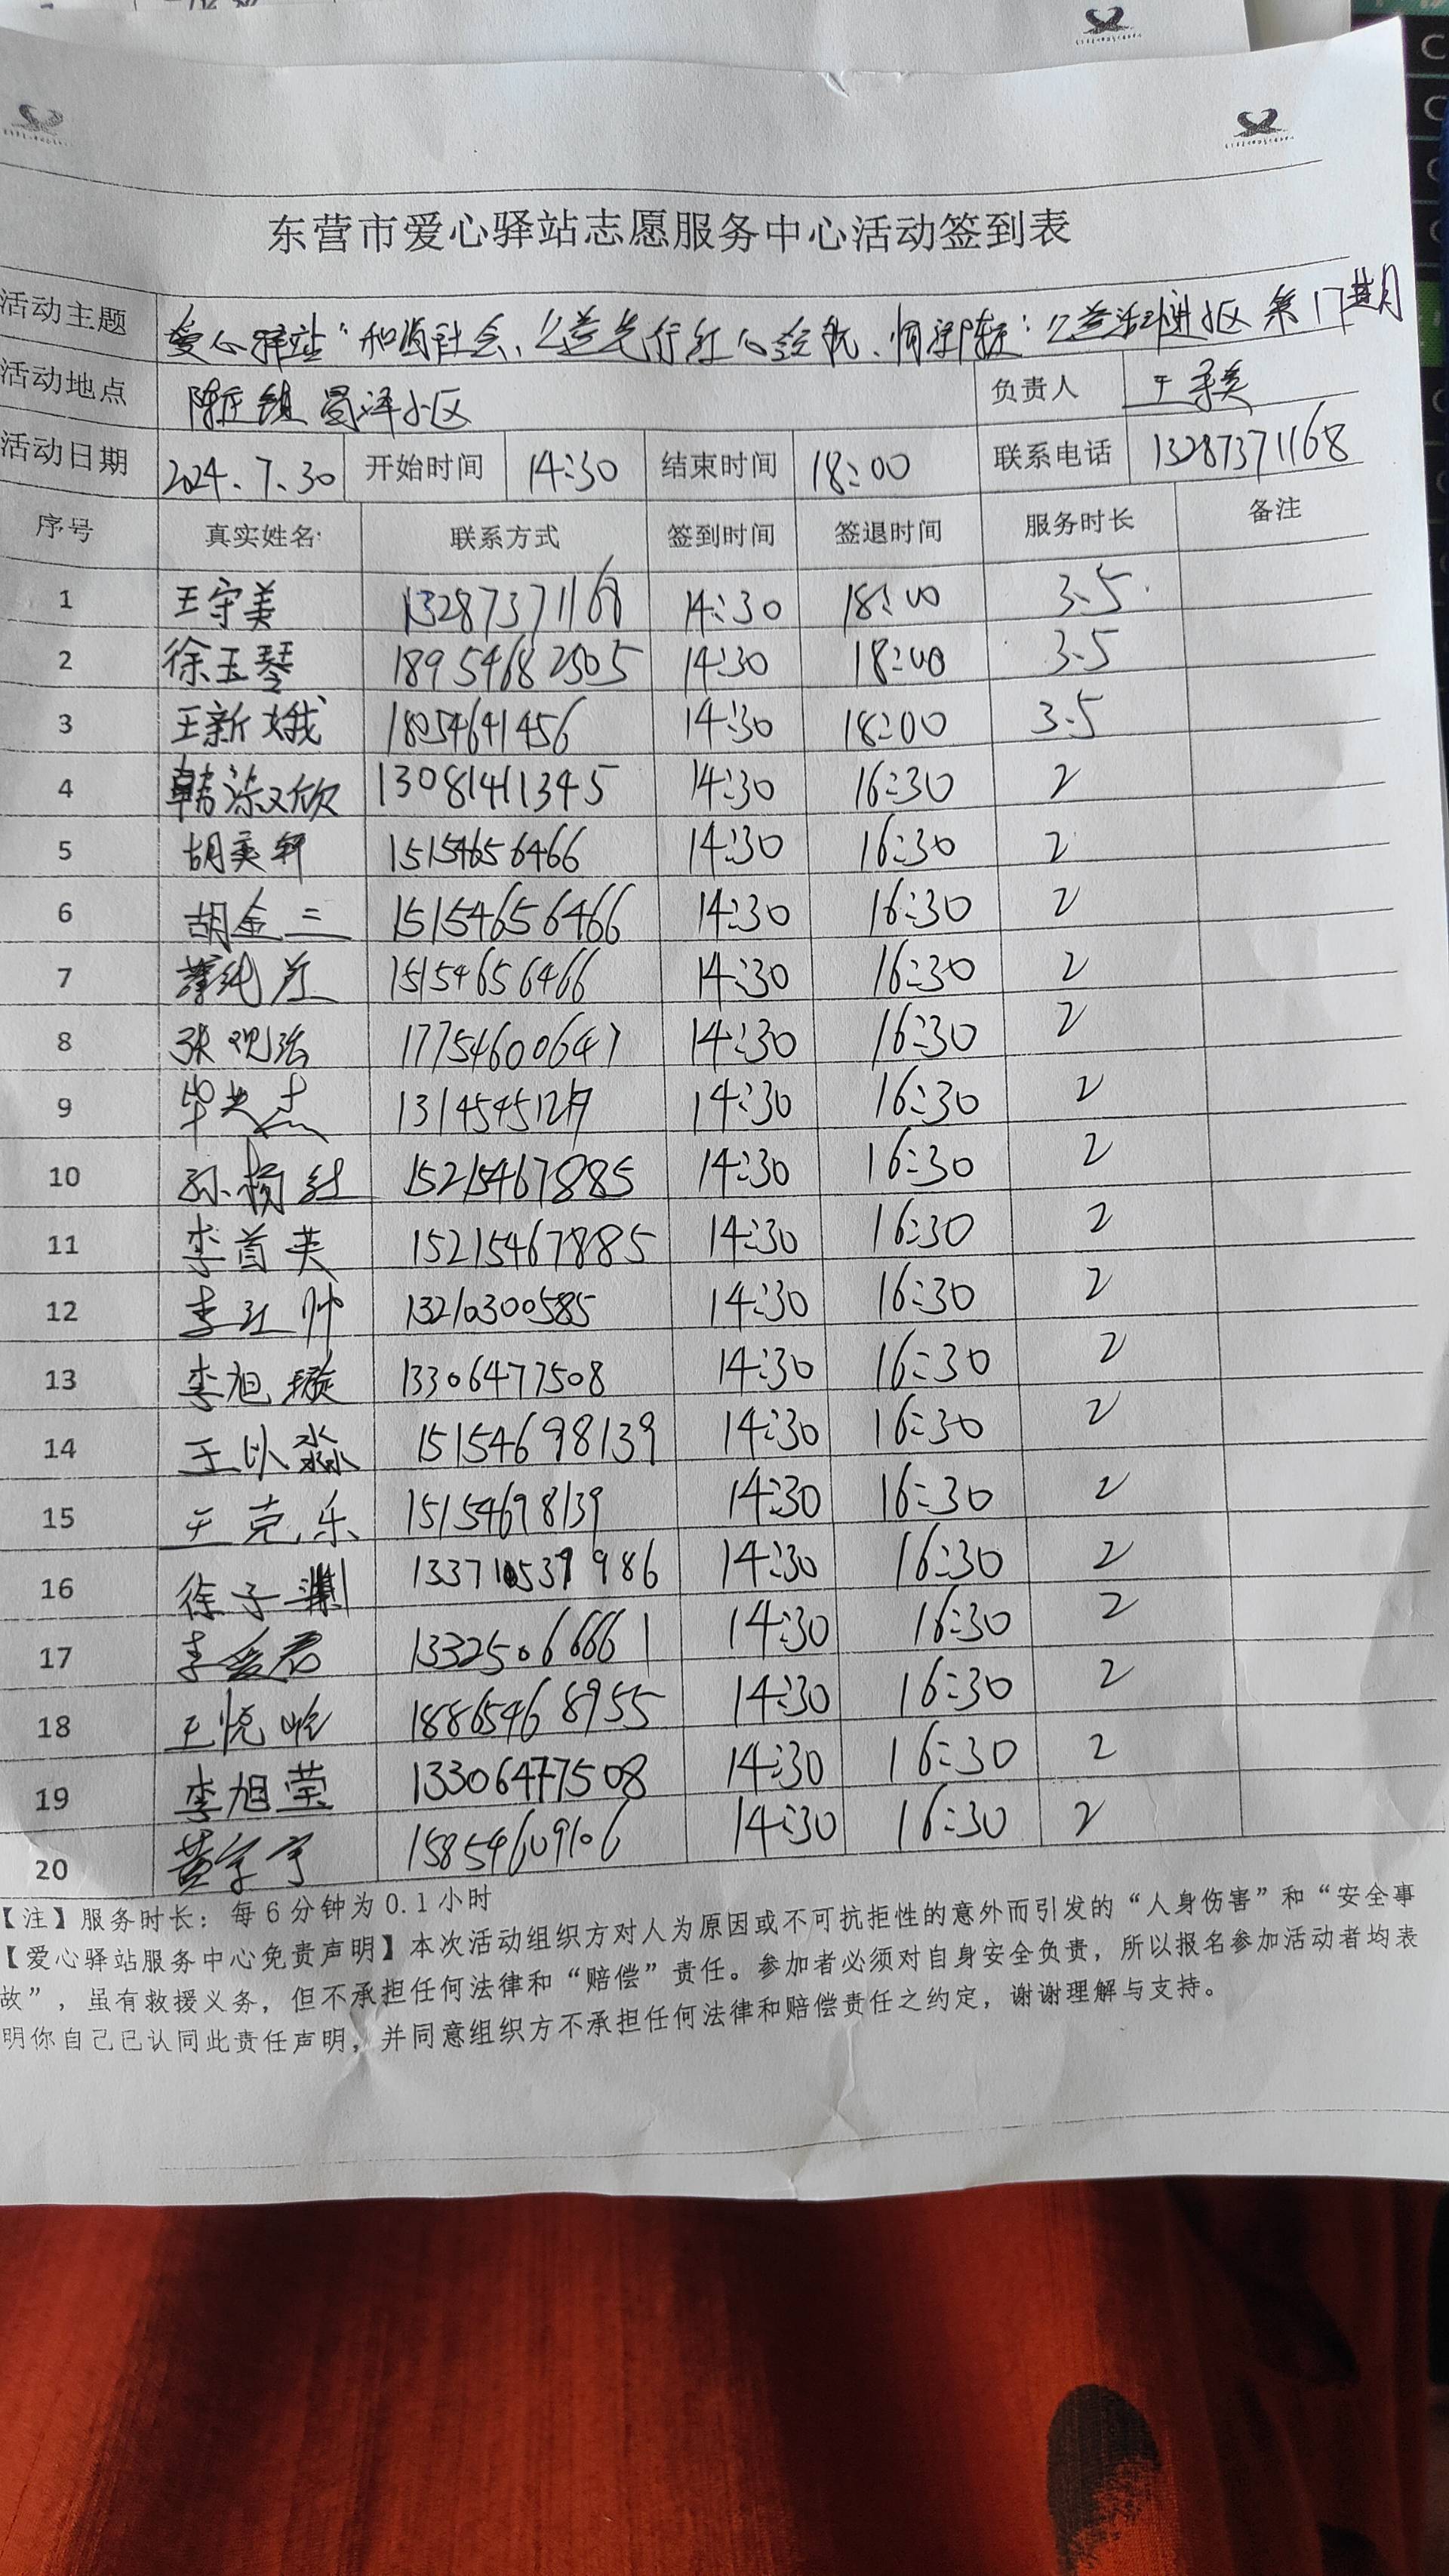 东营市爱心驿站志愿服务中心活动签到表
活动主题 爱心驿站“和谐社会、公益先行 红心 公益活动进小区 第17期
活动地点 陈庄镇 小区 负责人 王
活动日期 2024.7.30 开始时间 14:30 结束时间 18:00 联系电话 13287371168
序号 真实姓名: 联系方式 签到时间 签退时间 服务时长 备注
1 王守美 13287371168 14:30 18:00 3.5
2 徐玉琴 18954682505 14:30 18:00 3.5
3 王新娥 18054641456 14:30 18:00 3.5
4 韩 欣 13081411345 14:30 16:30 2
5 胡 轩 15154656466 14:30 16:30 2
6 胡金三 15154656466 14:30 16:30 2
7 15154656466 14:30 16:30 2
8 张观浩 17754600647 14:30 16:30 2
9 毕 杰 14:30 16:30 2
10 孙杨红 15215467885 14:30 16:30 2
11 李首英 15215467885 14:30 16:30 2
12 李 帅 13210300585 14:30 16:30 2
13 李旭璇 13306477508 14:30 16:30 2
14 王以淼 15154698139 14:30 16:30 2
15 王克乐 15154698139 14:30 16:30 2
16 徐子 14:30 16:30 2
17 李爱君 13325066661 14:30 16:30 2
18 王悦 18865468955 14:30 16:30 2
19 李旭莹 13306477508 14:30 16:30 2
20 黄宇 15854609106 14:30 16:30 2
【注】服务时长：每6分钟为0.1小时
【爱心驿站服务中心免责声明】本次活动组织方对人为原因或不可抗拒性的意外而引发的“人身伤害”和“安全事
故”，虽有救援义务，但不承担任何法律和“赔偿”责任。参加者必须对自身安全负责，所以报名参加活动者均表
明你自己已认同此责任声明，并同意组织方不承担任何法律和赔偿责任之约定，谢谢理解与支持。